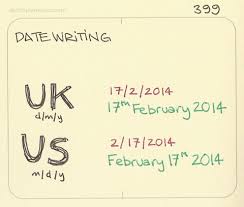 399
DATE WRITING
UK
d/m/y
17/2/2014
17th February 2014
US
m/d/y
2/17/2014
February 17th 2014